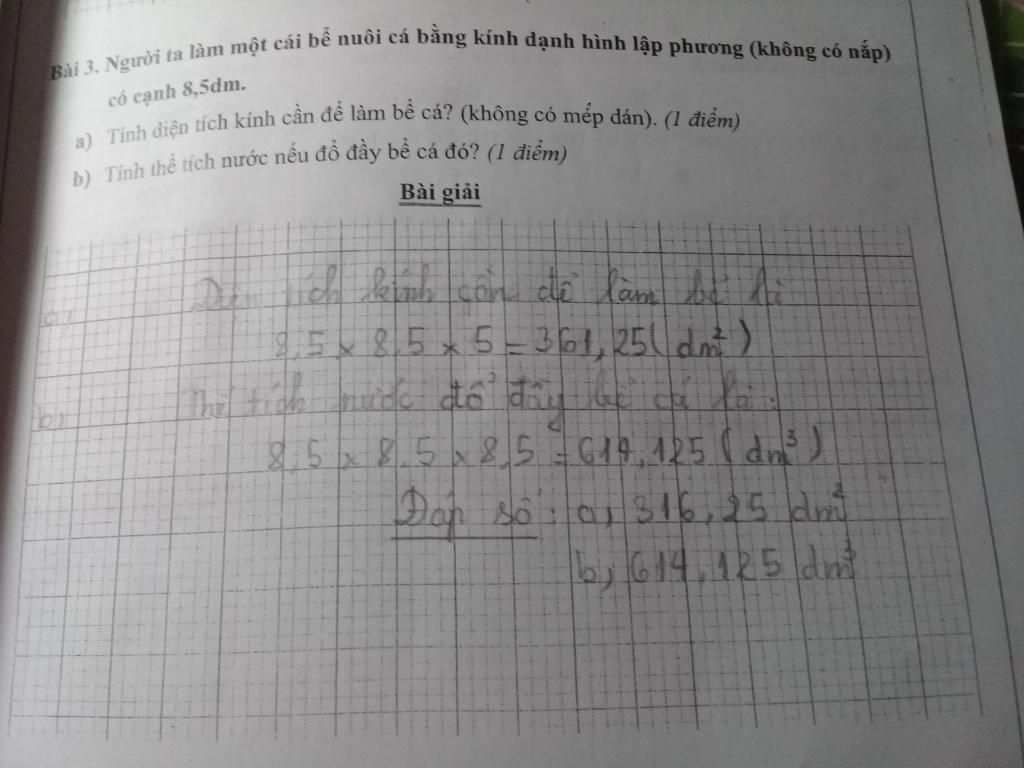 Bài 3. Người ta làm một cái bể nuôi cá bằng kính dạnh hình lập phương (không có nắp)
có cạnh 8,5dm.
a) Tính diện tích kính cần để làm bể cá? (không có mép dán). (1 điểm)
b) Tính thể tích nước nếu đổ đầy bể cá đó? (1 điểm)
Bài giải
a, Diện tích kính cần để làm bể là
8,5 x 8,5 x 5 = 361,25 (dm²)
b, Thể tích nước đổ đầy bể cá là:
8,5 x 8,5 x 8,5 = 614,125 (dm³)
Đáp số: a, 316,25 dm²
b, 614,125 dm³